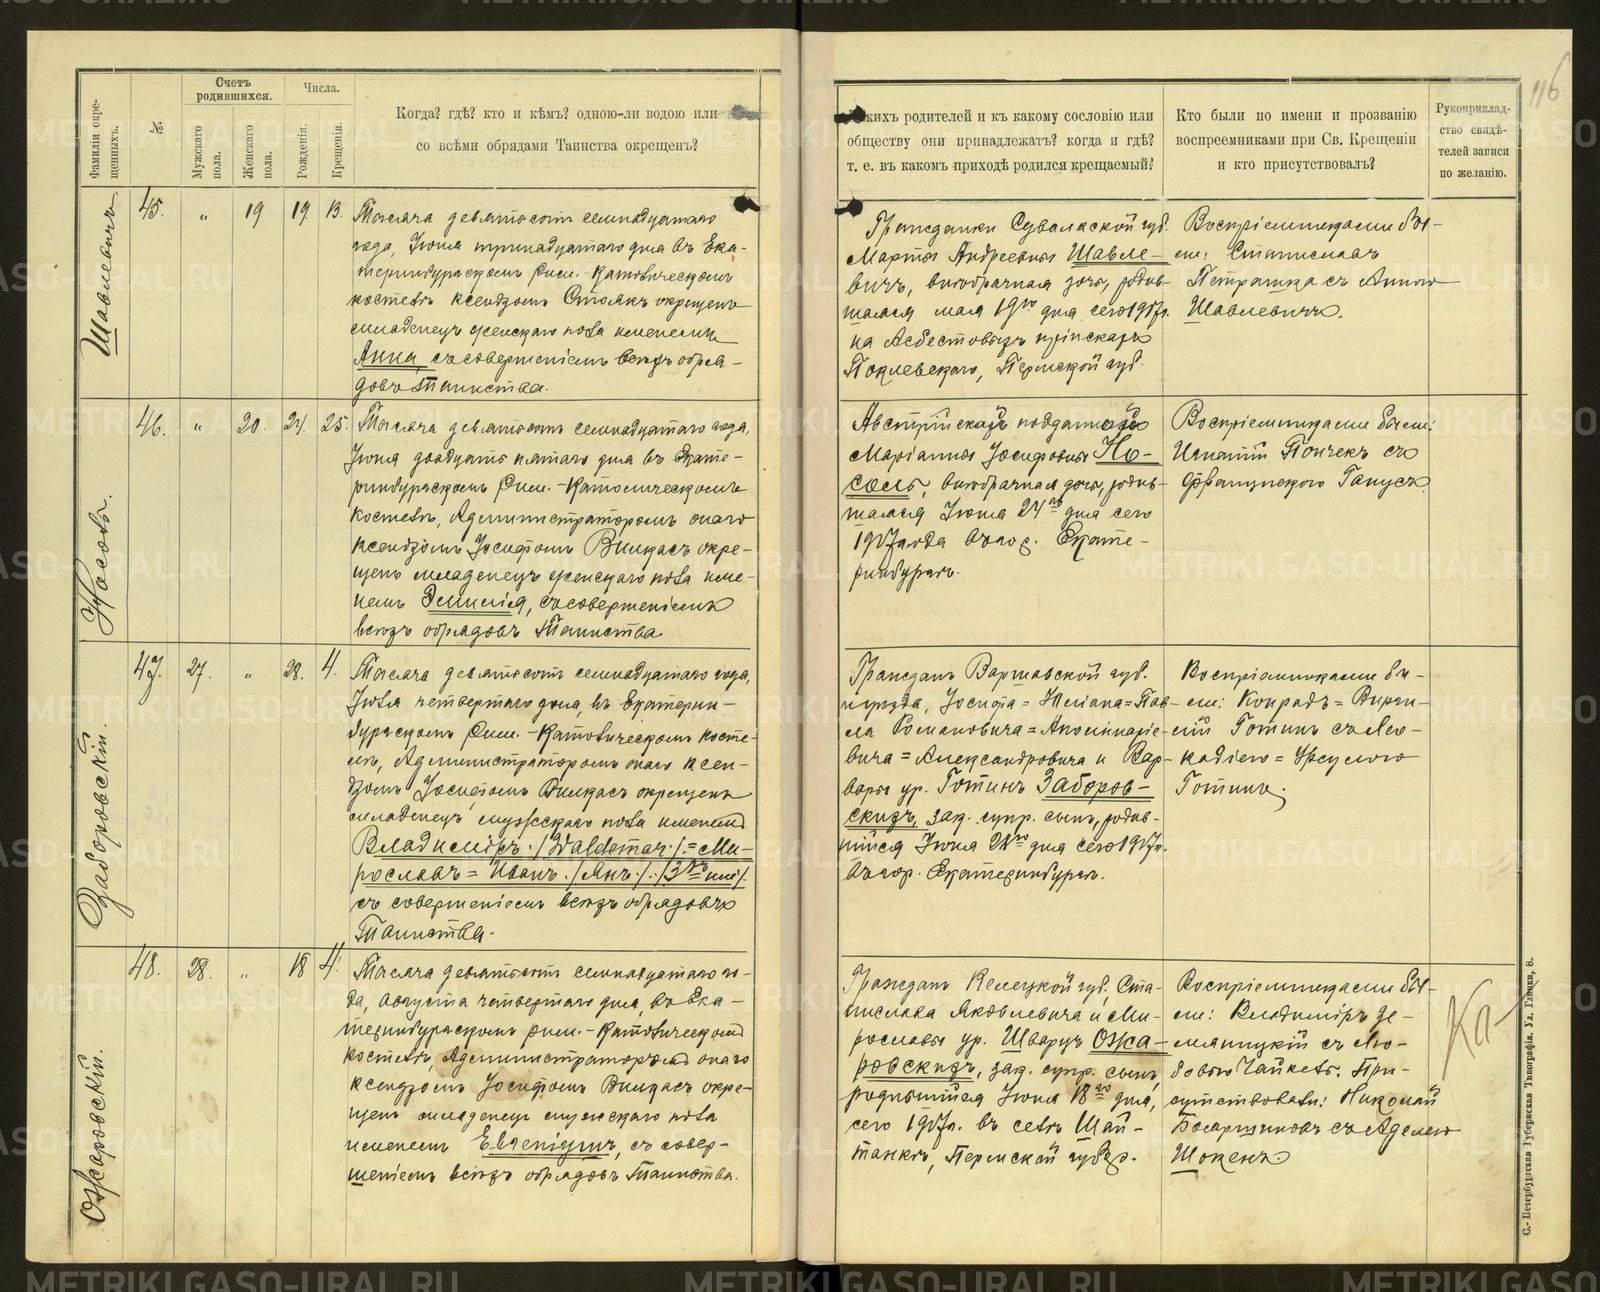 Фамиліи окрещенныхъ.
№
Счетъ родившихся.
Мужскаго пола.
Женскаго пола.
Числа.
Рожденія.
Крещенія.
Когда? гдѣ? кто и кѣмъ? одною-ли водою или
со всѣми обрядами Таинства окрещенъ?
Шавлевичъ
45.
"
19
19
13.
Тысяча девятьсотъ семнадцатаго
года, Іюня тринадцатаго дня въ Ека-
теринбургскомъ Рим.-Католическомъ
костелѣ ксендзомъ окрещенъ
младенецъ женскаго пола именемъ
Анна, съ совершеніемъ всѣхъ обря-
довъ Таинства.
Носовъ.
46.
"
20.
24.
25.
Тысяча девятьсотъ семнадцатаго года,
Іюня двадцать пятаго дня въ Екате-
ринбургскомъ Рим.-Католическомъ
костелѣ, Администраторомъ онаго
ксендзомъ Іосифомъ Вилкасъ окре-
щенъ младенецъ женскаго пола име-
немъ Эмилія, съ совершеніемъ
всѣхъ обрядовъ Таинства
Заборовскій.
47.
27.
"
28.
4.
Тысяча девятьсотъ семнадцатаго года,
Іюля четвертаго дня, въ Екатерин-
бургскомъ Рим.-Католическомъ косте-
лѣ, Администраторомъ онаго ксен-
дзомъ Іосифомъ Вилкасъ окрещенъ
младенецъ мужескаго пола именемъ
Владиміръ ./Waldemar/.=Ми-
рославъ=Иванъ ./Янъ/. /3хъ им./.
съ совершеніемъ всѣхъ обрядовъ
Таинства.
Ожаровскій.
48.
28.
"
18
4.
Тысяча девятьсотъ семнадцатаго го-
да, августа четвертаго дня, въ Ека-
теринбургскомъ Рим.-Католическомъ
костелѣ, Администраторомъ онаго
ксендзомъ Іосифомъ Вилкасъ окре-
щенъ младенецъ мужескаго пола
именемъ Евгеніушъ, съ совер-
шеніемъ всѣхъ обрядовъ Таинства.
116
какихъ родителей и къ какому сословію или
обществу они принадлежатъ? когда и гдѣ?
т. е. въ какомъ приходѣ родился крещаемый?
Кто были по имени и прозванію
воспреемниками при Св. Крещеніи
и кто присутствовалъ?
Рукоприклад-
ство свидѣ-
телей записи
по желанію.
Гражданки Сувалкской губ.
Марты Андреевны Шавле-
вичъ, внѣбрачная дочь, родив-
шаяся мая 19го дня сего 1917г.
на Асбестовыхъ пріискахъ
Поклевскаго, Пермской губ.
Воспріемниками бы-
ли: Станиславъ
Петрашка съ Анною
Шавлевичъ.
Австрійской подданной
Маріанны Іосифовны Но-
совъ, внѣбрачная дочь, родив-
шаяся Іюня 24го дня сего
1917 года въ гор. Екате-
ринбургѣ.
Воспріемниками были:
Игнатій Пончекъ съ
Францискою Ганусъ
Гражданъ Варшавской губ.
и уѣзда, Іосифа=Юліана=Пав-
ла Романовича=Аполлинаріе-
вича=Александровича и Вар-
вары ур. Готинъ Заборов-
скихъ, зак. супр. сынъ, родив-
шійся Іюня 28го дня сего 1917г.
въ гор. Екатеринбургѣ.
Воспріемниками бы-
ли: Конрадъ=Вирги-
лій Готинъ съ Лео-
кадіею=Урсулою
Готинъ.
Гражданъ Келецкой губ. Ста-
нислава Яковлевича и Ми-
рославы ур. Шварцъ Ожа-
ровскихъ, зак. супр. сынъ,
родившійся Іюня 18го дня,
сего 1917г. въ селѣ Шай-
танкѣ, Пермской губер.
Воспріемниками бы-
ли: Владиміръ Де-
съ Лю-
бовью Чайкель. При-
сутствовали: Николай
съ Аделею
Шокенъ.
Ка-
С.-Петербургская Губернская Типографія. Ул. Глинки, 8.
METRIKI.GASO-URAL.RU
METRIKI.GASO-URAL.RU
METRIKI.GASO-URAL.RU